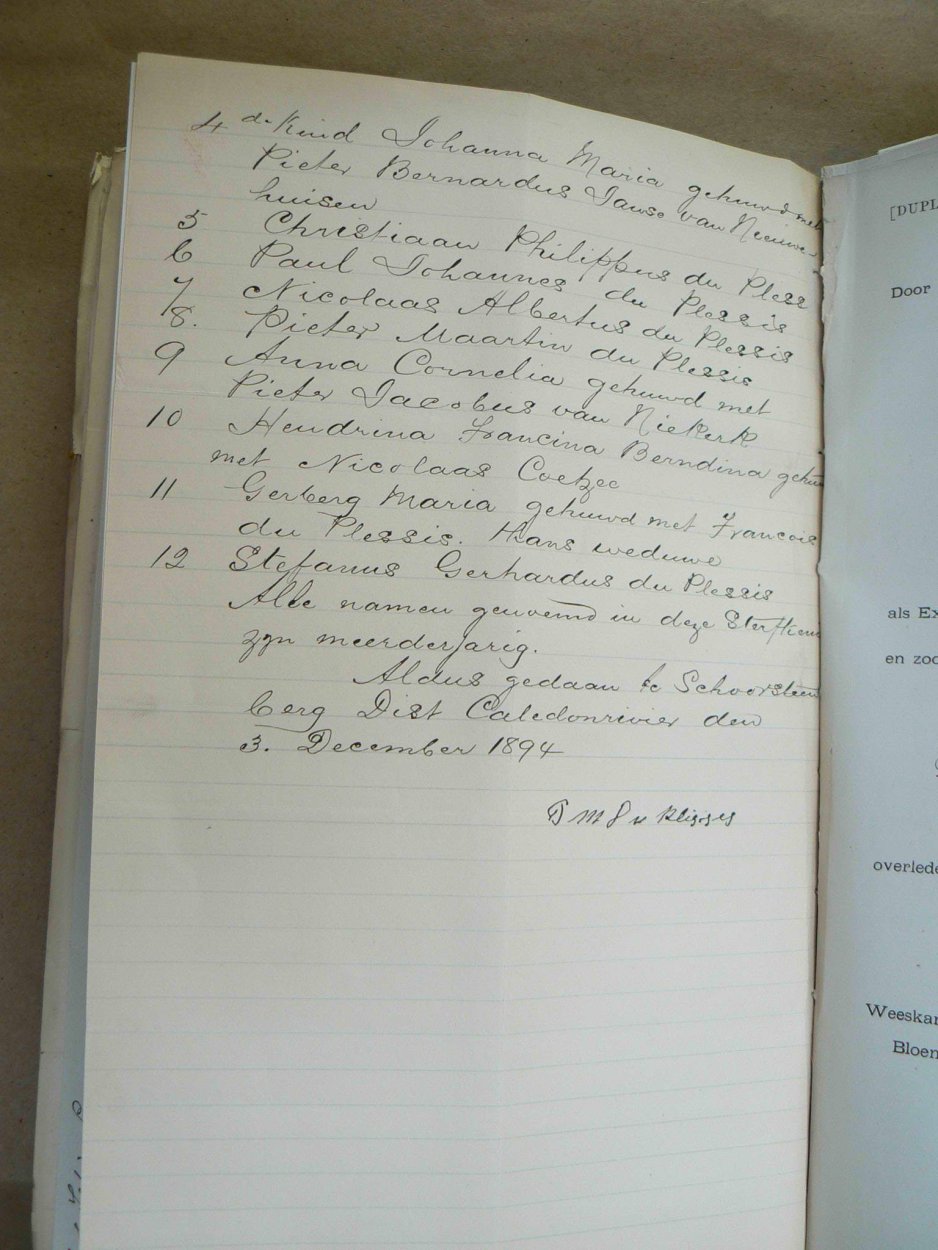 4 de Kind Johanna Maria gehuwd met
Pieter Bernardus Janse van Nieuwe-
huisen
5 Christiaan Philippus du Pless
6 Paul Johannes du Plessis
7 Nicolaas Albertus du Plessis
8. Pieter Maartin du Plessis
9 Anna Cornelia gehuwd met
Pieter Jacobus van Niekerk
10 Hendrina Francina Berndina gehu
met Nicolaas Coetzee
11 Gerberg Maria gehuwd met Francois
du Plessis. Thans weduwe
12 Stefanus Gerhardus du Plessis
Alle namen genoemd in deze
zyn meerderjarig.
Aldus gedaan te Schoorsteen
berg Dist Caledonrivier den
3. December 1894
[DUPL
Door
als Ex
en zoo
overlede
Weeskar
Bloen